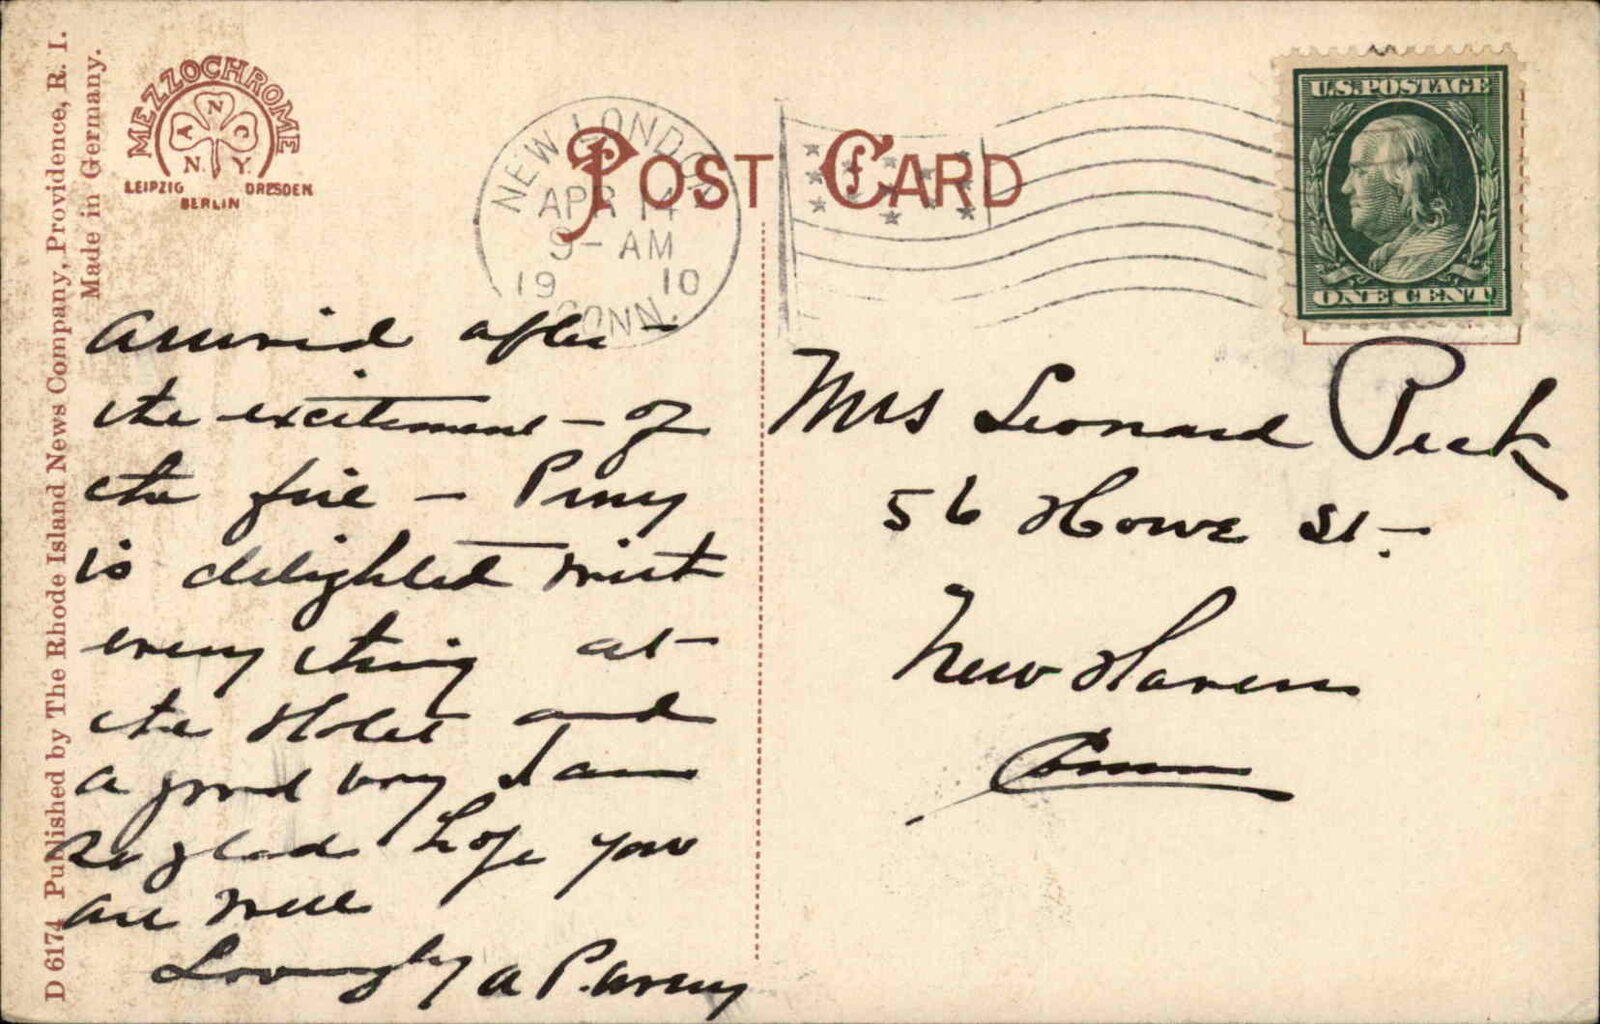 D 6174 Published by The Rhode Island News Company, Providence, R. I.
Made in Germany.
MEZZOCHROME
A N C
N. Y.
LEIPZIG BERLIN DRESDEN
POST CARD
NEW LONDON
APR 14
9- AM
19 10
CONN.
U.S. POSTAGE
ONE CENT
arrived after
the excitement - of
the fire -
is delighted with
every thing at
the Hotel and
a good boy I am
so glad hope you
are well
Lovingly
Mrs Leonard Peck
56 Howe St.-
New Haven
Conn